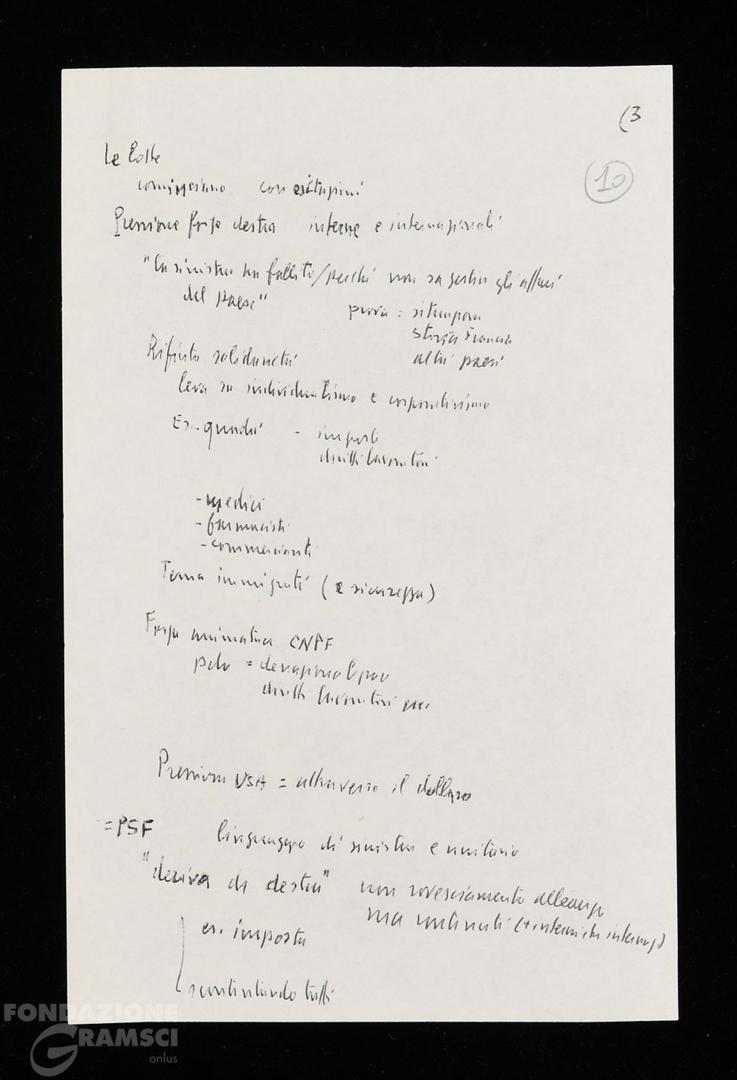 (3
10
Le lotte
cominciano con
Pressione forze destra interne e internazionali
"la sinistra ha fallito / perché non sa gestire gli affari
del paese"
prova: situazione
Francia
altri paesi
Rifiuto solidarietà
leva su individualismo e corporativismo
Es. quadri - imposte
diritti lavoratori
- medici
- farmacisti
- commercianti
Tema immigrati (e sicurezza)
Forza animatrice CNPF
= denazionalizzare
diritti lavoratori ecc.
Pressioni USA = attraverso il dollaro
= PSF linguaggio di sinistra e unitario
"deriva di destra" non rovesciamento alleanze
ma
es. imposta
scontentando tutti
FONDAZIONE
GRAMSCI
onlus